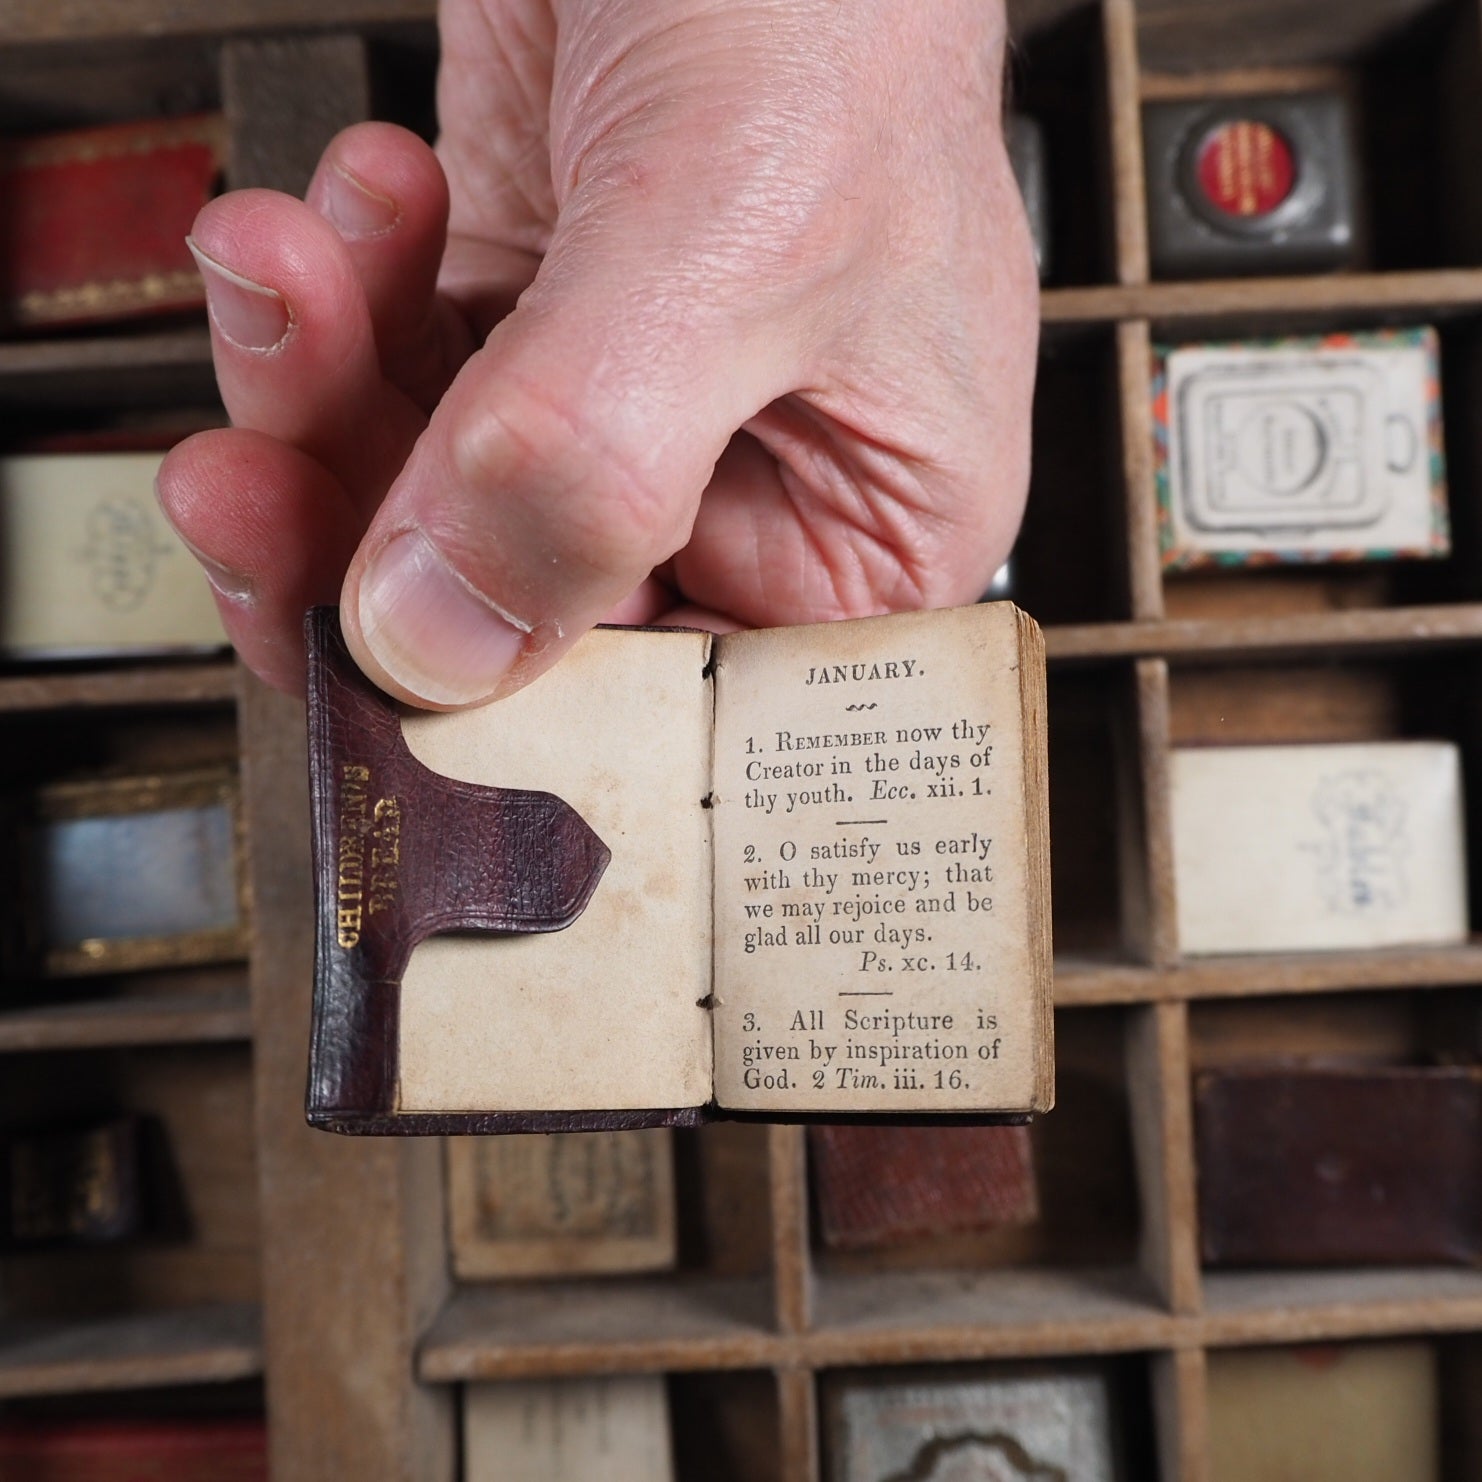 CHILDREN'S
BREAD
JANUARY.
1. REMEMBER now thy
Creator in the days of
thy youth. Ecc. xii. 1.
2. O satisfy us early
with thy mercy; that
we may rejoice and be
glad all our days.
Ps. xc. 14.
3. All Scripture is
given by inspiration of
God. 2 Tim. iii. 16.